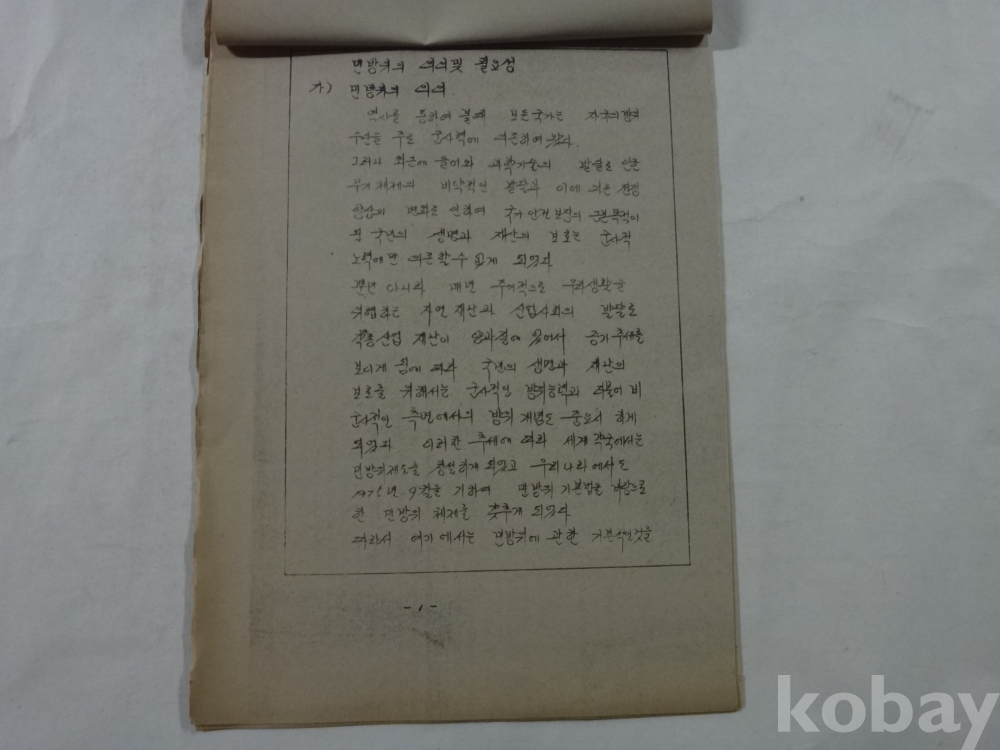 민방위의 의의및 필요성
가) 민방위의 의의.
역사를 통하여 볼때 모든국가는 자국의
수단을 주로 군사력에 의존하여 왔다.
그러나 최근에 들어와 과학기술의 발달로 인한
무기 체제의 비약적인 발달과 이에 따른 전쟁
양상의 변화로 인하여 국가 안전 보장의 근본목적이
국민의 생명과 재산의 보호는 군사적
노력에만 의존할수 없게 되었다
뿐만 아니라 매년 주기적으로 우리생활을
위협하는 자연 재난과 산업사회의 발달로
각종산업 재난이 있어서 증가 추세를
보이게 됨에 따라 국민의 생명과 재산의
보호를 위해서는 군사적인 방위능력과 더불어 비
군사적인 측면에서의 방위 개념도 중요시 하게
되었다 이러한 추세에 따라 세계 각국에서는
민방위제도를 되었고 우리나라에서도
1975년 9월을 기하여 민방위 기본법을 바탕으로
한 민방위 체제를 갖추게 되었다
따라서 여기에서는 민방위에 관한 기본적인것을
-1-
kobay